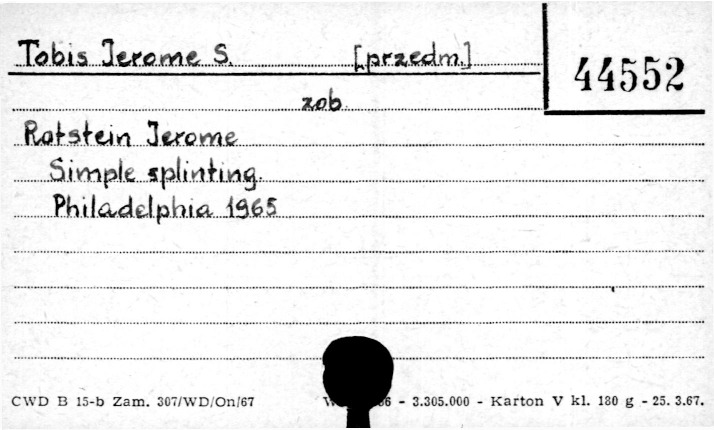 Tobis Jerome S. [przedm.]
44552
zob.
Rotstein Jerome
Simple splinting.
Philadelphia 1965
CWD B 15-b Zam. 307/WD/On/67 - 3.305.000 - Karton V kl. 180 g - 25. 3.67.